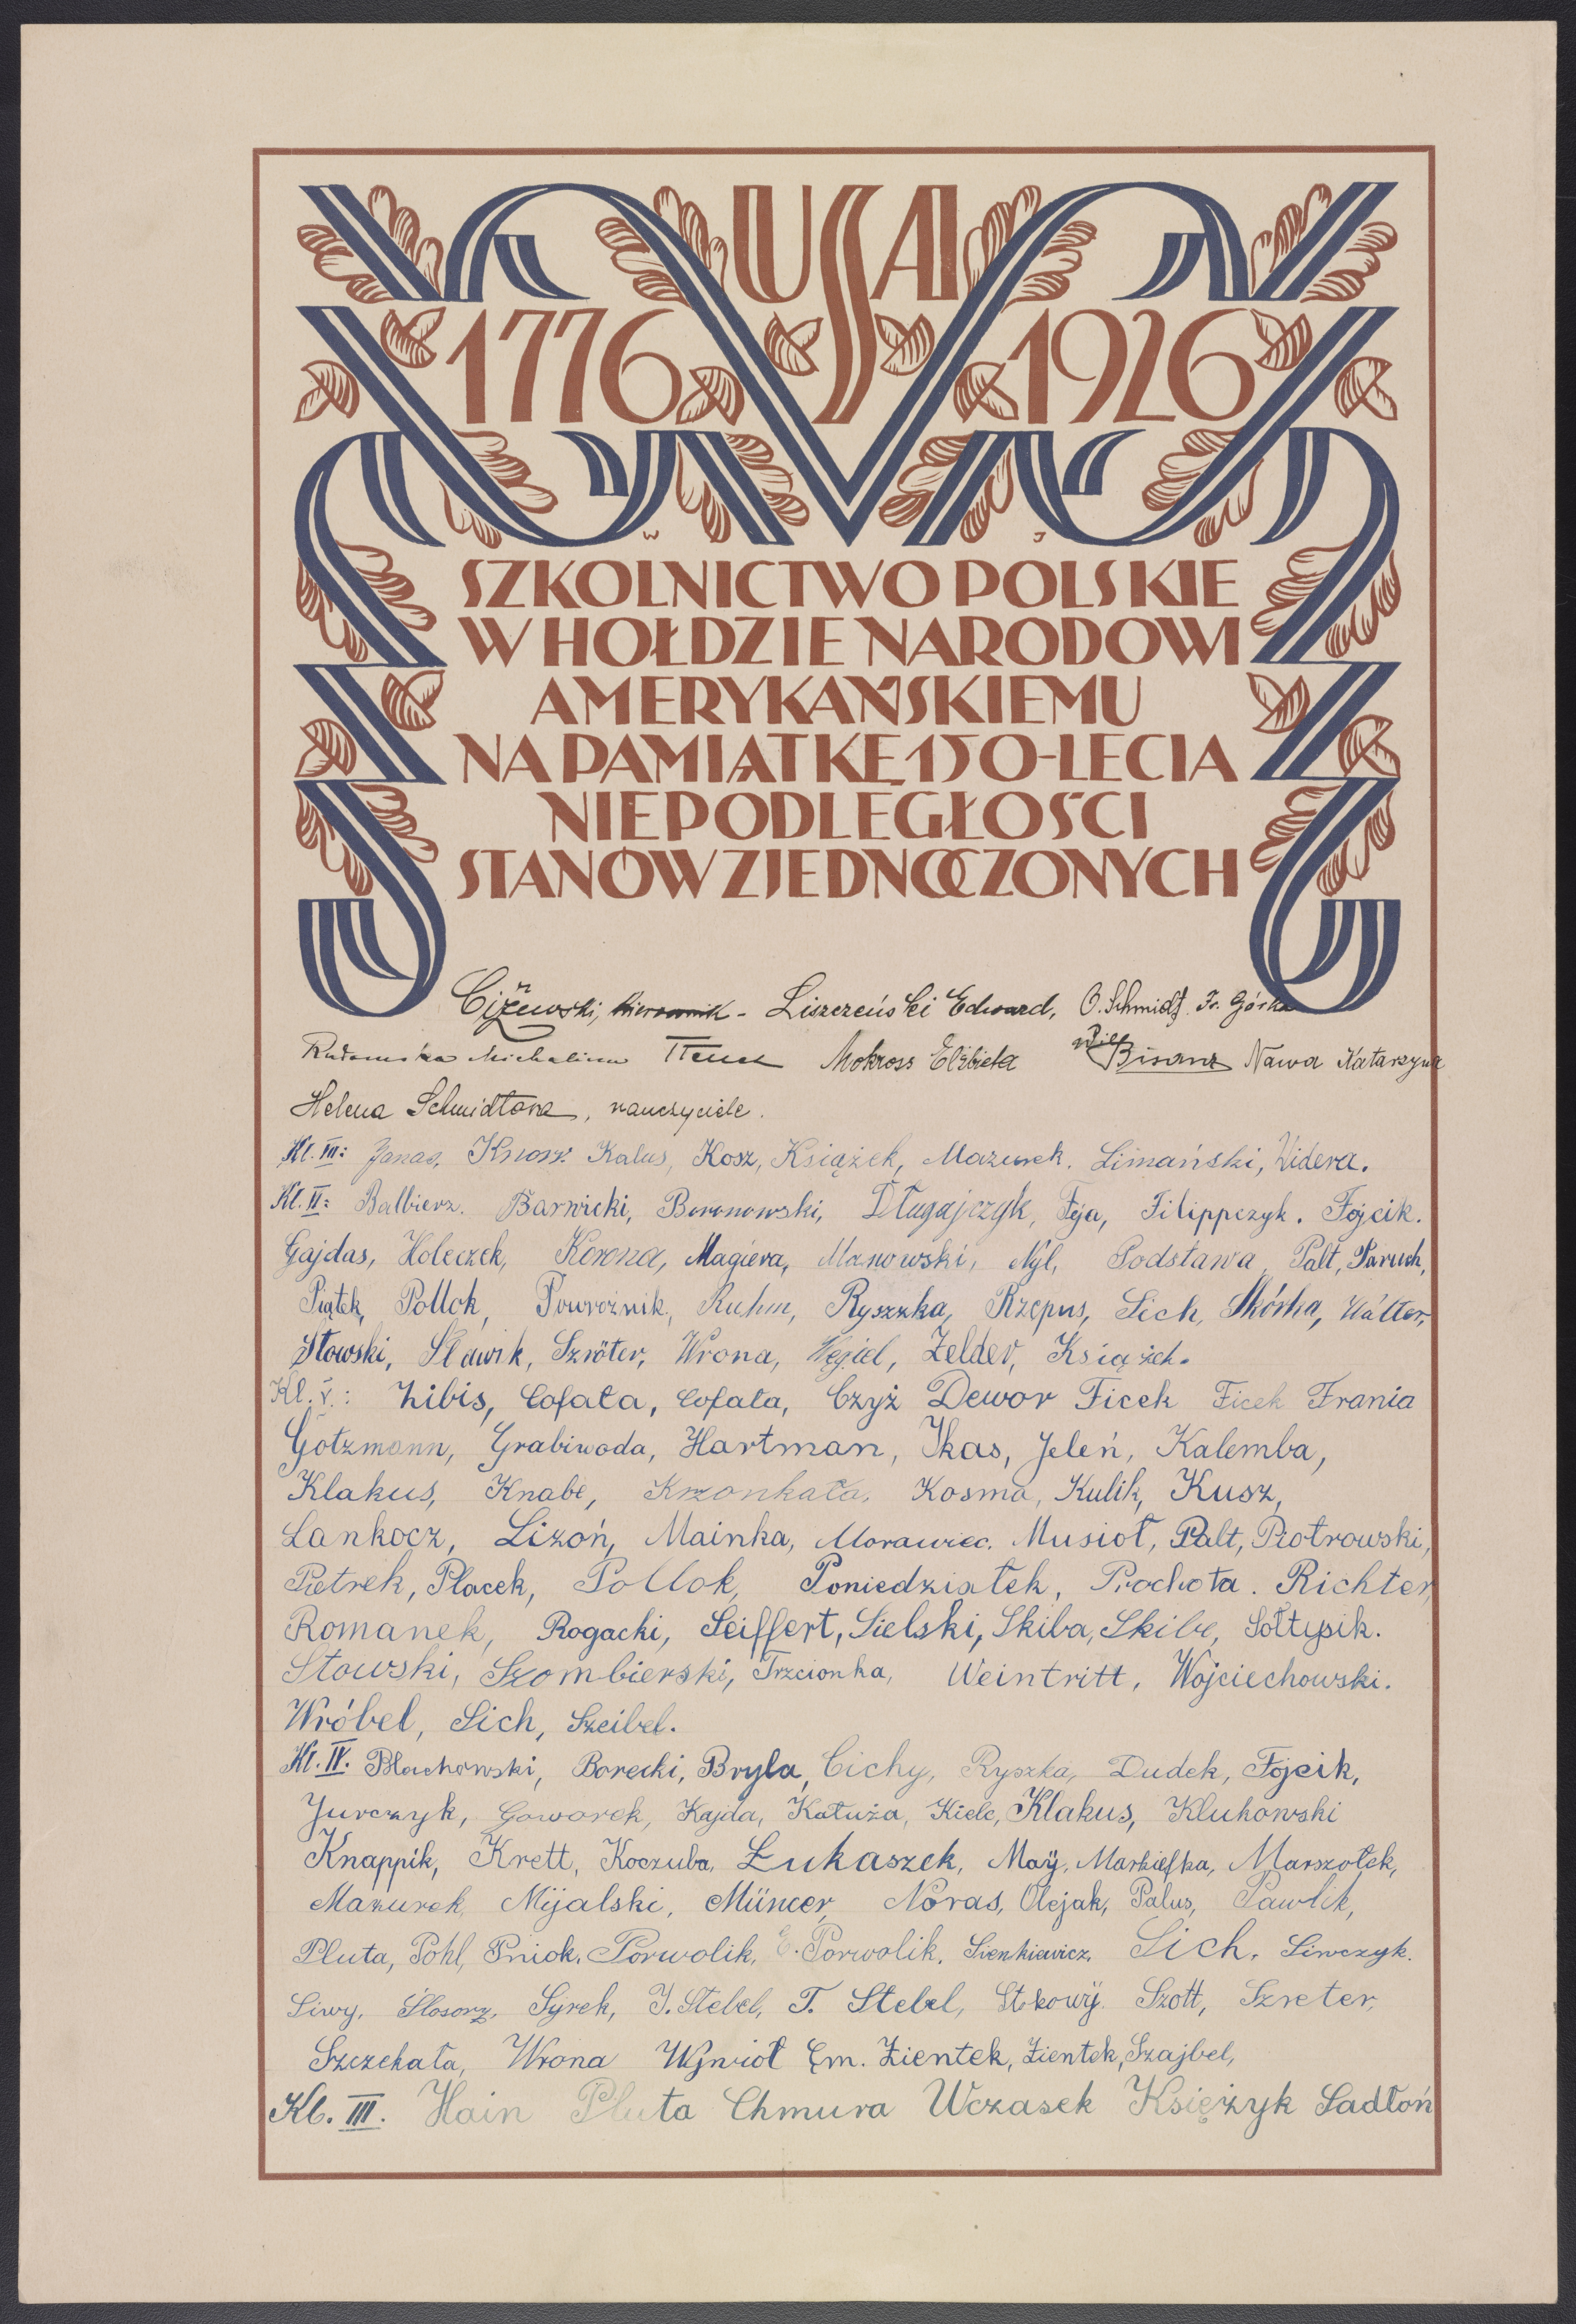 USA
1776 1926
W J
SZKOLNICTWO POLSKIE
W HOŁDZIE NARODOWI
AMERYKAŃSKIEMU
NA PAMIĄTKĘ 150-LECIA
NIEPODLEGŁOŚCI
STANÓW ZJEDNOCZONYCH
Ciżewski, kierownik - Liszczeński Edward, O. Schmidt. Fr. Górka
Michalina Mokross Elżbieta Bisanz Nawa Katarzyna
Helena Schmidtowa, nauczyciele.
Kl. III: Janas, Knossr. Kalus, Kosz, Książek, Mazurek. Limański, Widera.
Kl. II: Balbierz. Barwicki, Boronowski, Długajczyk, Feja, Filippczyk. Fojcik.
Gajdas, Holeczek, Korona, Magiera, Manowski, Nyl, Podstawa, Palt, Paruch,
Piątek, Pollok, Powroźnik, Ruhm, Ryszka, Rzepus, Sich, Skórka, Walter,
Stowski, Sławik, Szröter, Wrona, Węgiel, Zelder, Książek.
Kl. V.: Libis, Cofała, Cofała, Czyż Dewor Ficek Ficek Frania
Gotzmann, Grabiwoda, Hartman, Ikas, Jeleń, Kalemba,
Klakus, Knabe, Krzonkała, Kosma, Kulik, Kusz,
Lankocz, Lizoń, Mainka, Morawiec. Musioł, Palt, Piotrowski,
Pietrek, Placek, Pollok, Poniedziałek, Prochota. Richter
Romanek, Rogacki, Seiffert, Sielski, Skiba, Skiba, Sołtysik.
Stowski, Szombierski, Trzcionka, Weintritt, Wojciechowski.
Wróbel, Sich, Szeibel.
Kl. IV. Błachowski, Borecki, Bryla, Cichy, Ryszka, Dudek, Fojcik,
Jurczyk, Goworek, Kajda, Katuża, Kielc, Klakus, Klukowski
Knappik, Krett, Koczuba, Łukaszek, Maÿ, Markiefka, Marszołek,
Mazurek, Mijalski, Müncer, Noras, Olejak, Palus, Pawlik,
Pluta, Pohl, Pniok, Porwolik, E. Porwolik, Sienkiewicz, Sich, Siwczyk.
Siwy, Ślosorz, Syrek, J. Stebel, T. Stebel, Szott, Szreter,
Szczekała, Wrona Wyrwioł Em. Zientek, Zientek, Szajbel,
Kl. III. Hain Pluta Chmura Wczasek Księżyk Sadłoń